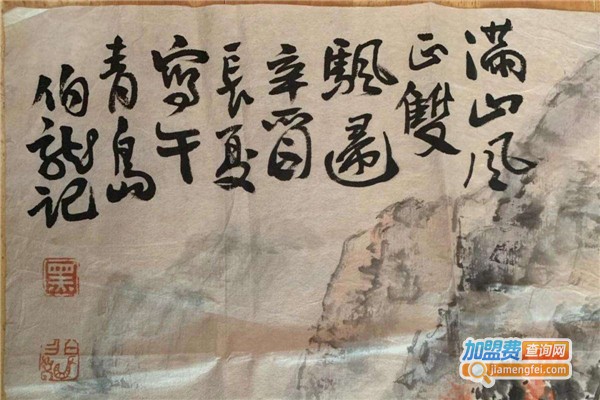 满山风
正雙
飘逼
辛酉
長夏
寫于
青島
伯龍记
加盟费查询网
jiamengfei.com